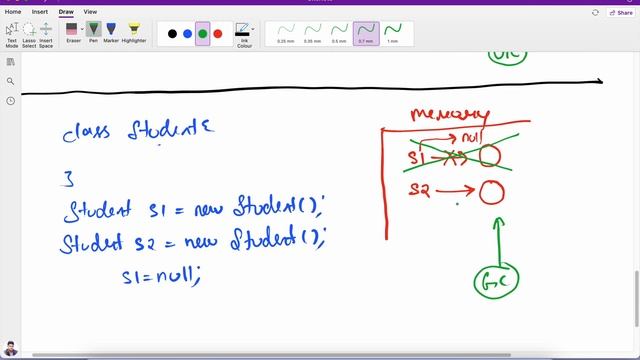 Home Insert Draw View
Share
Text Mode
Lasso Select
Insert Space
Eraser
Pen
Marker
Highlighter
Ink Colour
0.25 mm
0.35 mm
0.5 mm
0.7 mm
1 mm
class Student{
}
Student s1 = new Student();
Student s2 = new Student();
s1=null;
memory
null
S1
S2
GC